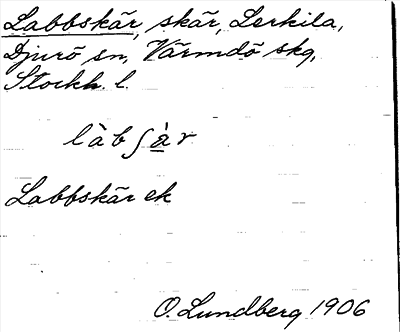 Labbskär, skär, Lerkila,
Djurö sn, Värmdö skg,
Stockh. l.
làbʃà̱r
Labbskär ek
O. Lundberg 1906